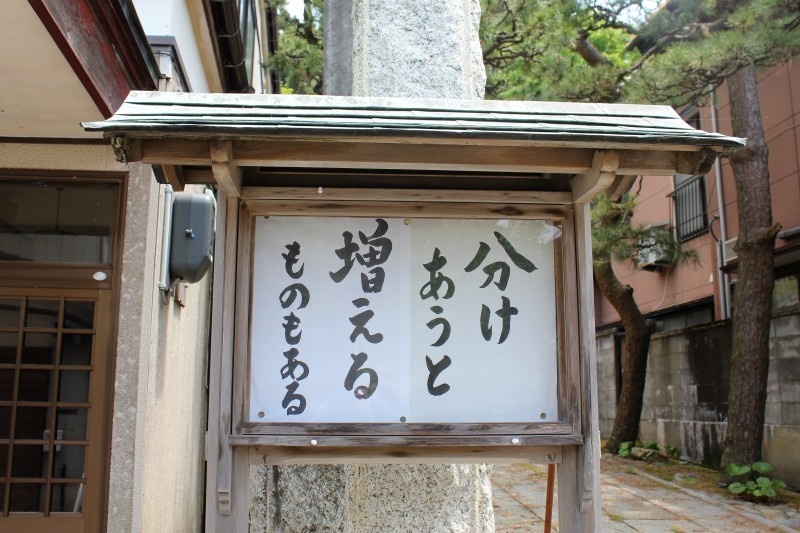 分け
あうと
増える
ものもある